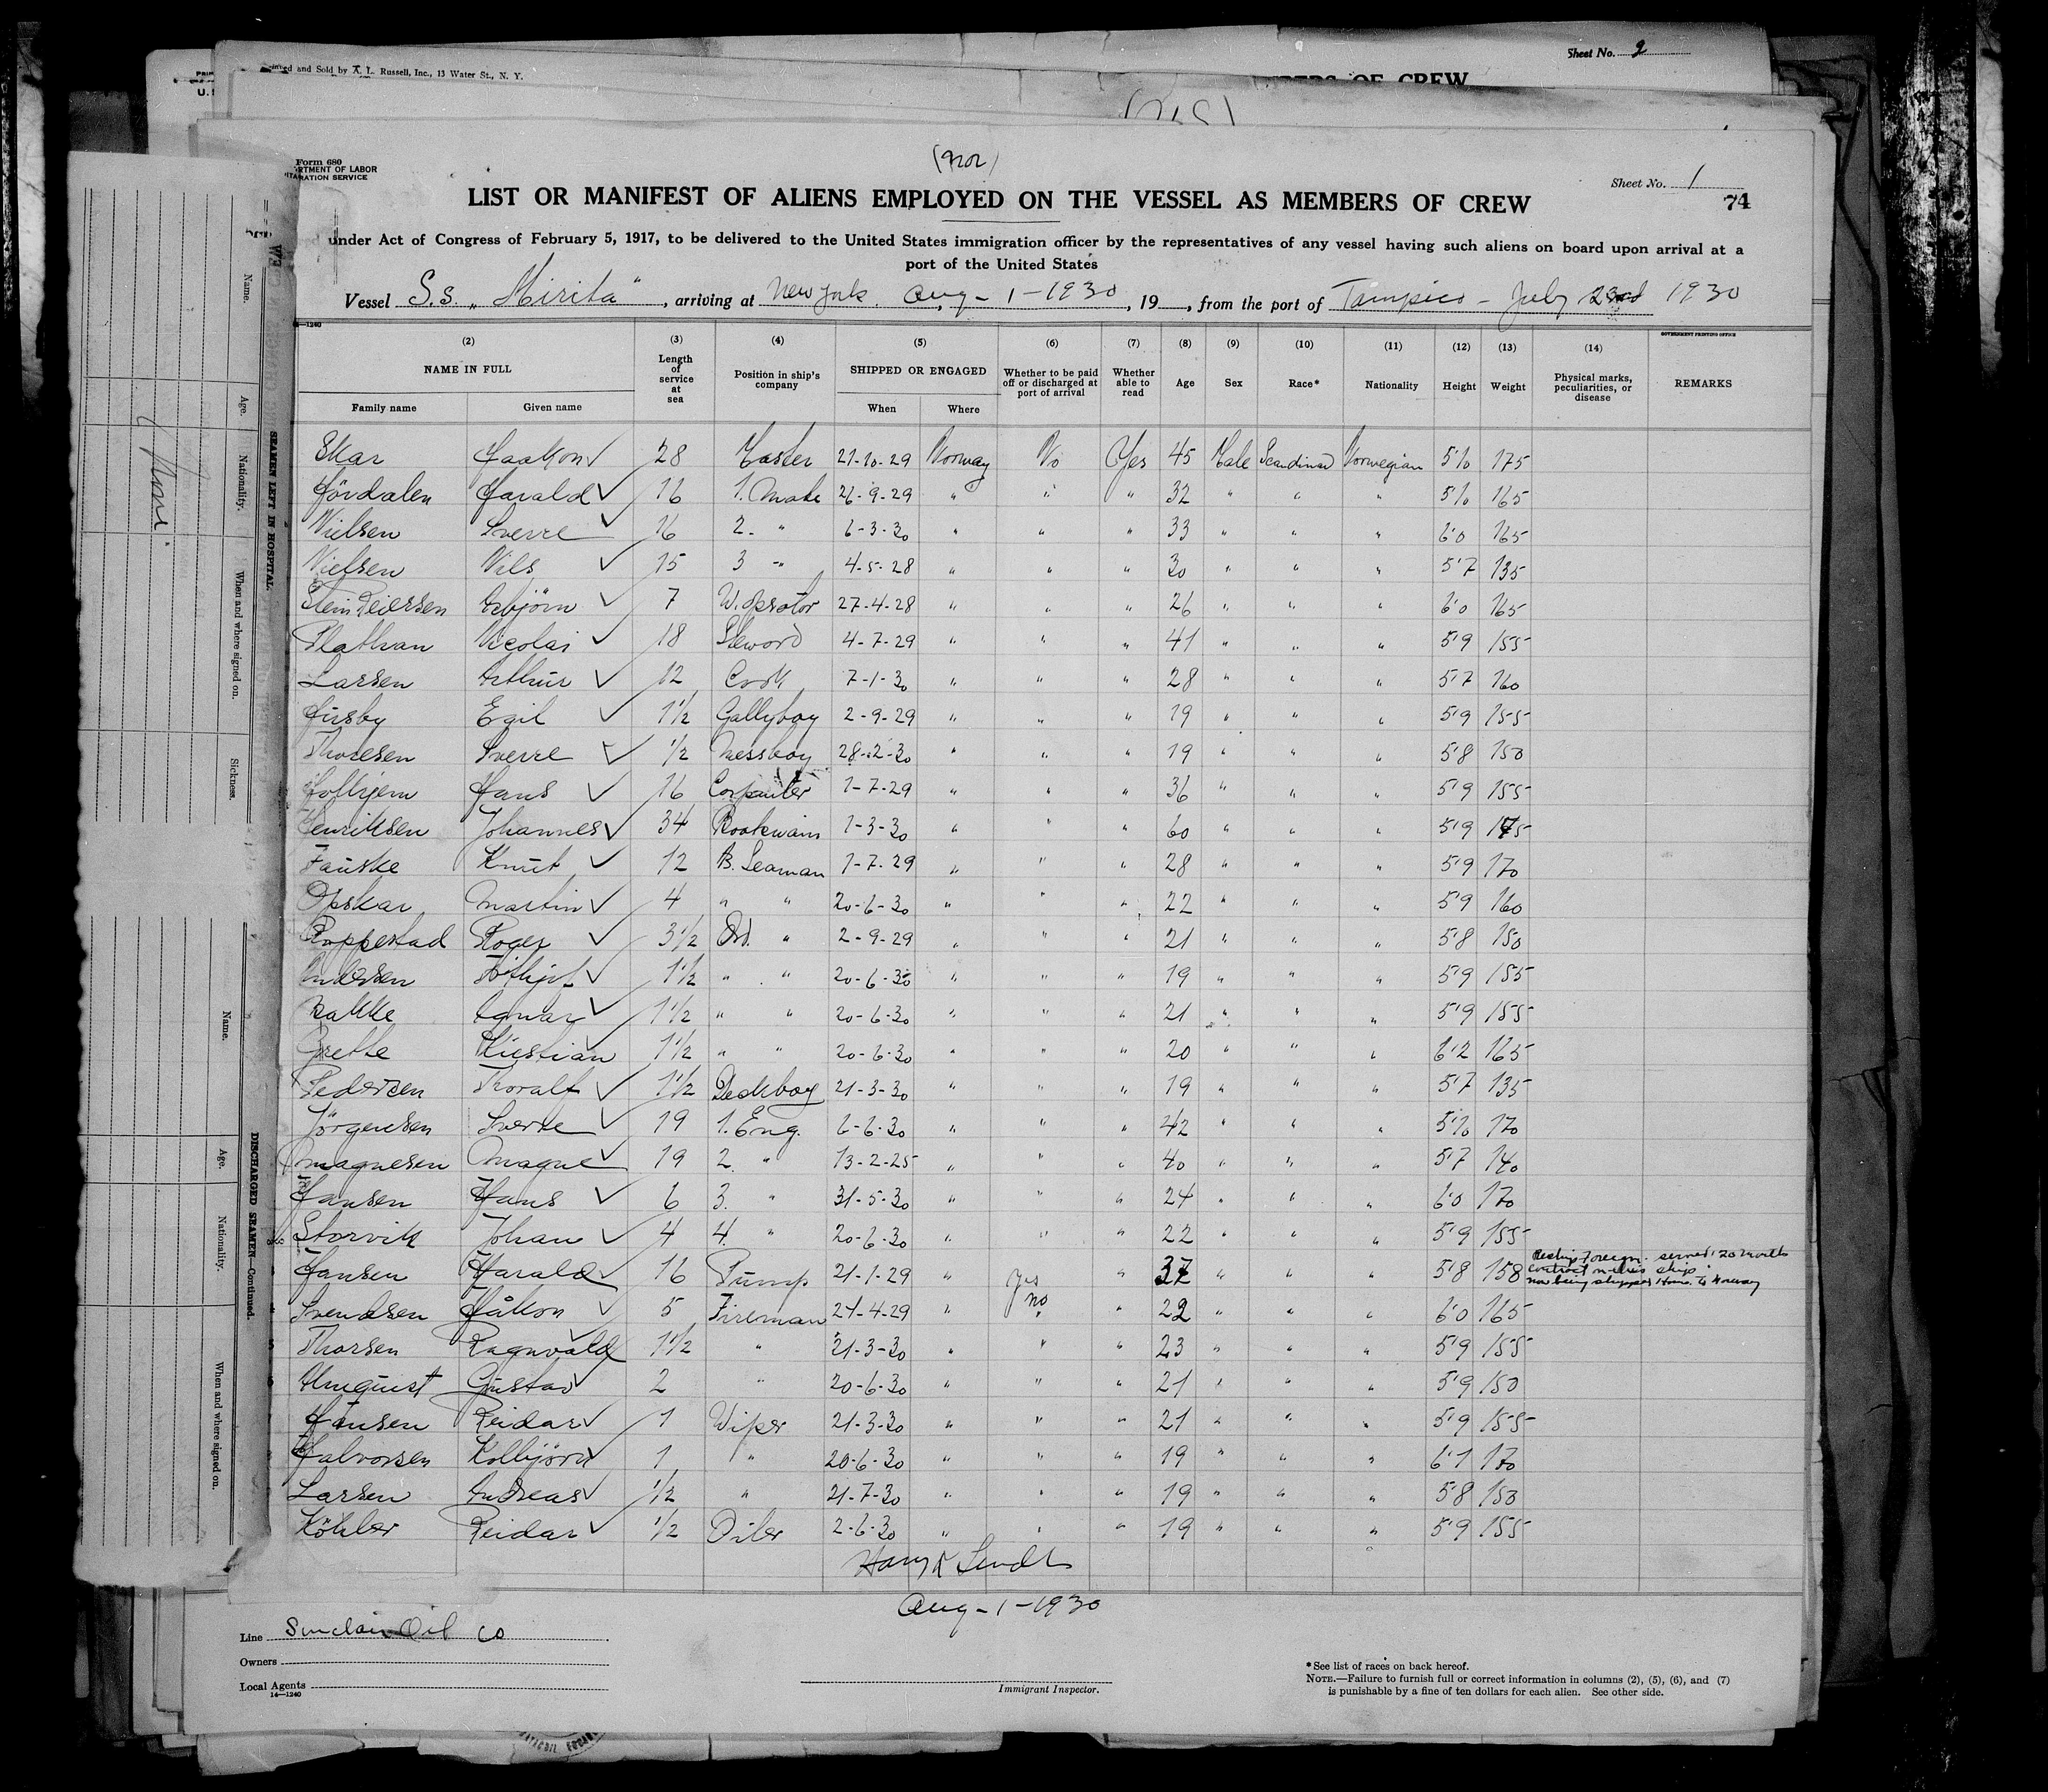 Sheet No. 2
Printed and Sold by A. L. Russell, Inc., 13 Water St., N. Y.
MEMBERS OF CREW
Form 680
DEPARTMENT OF LABOR
IMMIGRATION SERVICE
Sheet No. 1
LIST OR MANIFEST OF ALIENS EMPLOYED ON THE VESSEL AS MEMBERS OF CREW
74
under Act of Congress of February 5, 1917, to be delivered to the United States immigration officer by the representatives of any vessel having such aliens on board upon arrival at a
port of the United States
Vessel S.S. „Mirita“, arriving at New York. Aug-1-1930, 19, from the port of Tampico - July 23rd 1930
14—1240 GOVERNMENT PRINTING OFFICE
(2) (3) (4) (5) (6) (7) (8) (9) (10) (11) (12) (13) (14)
NAME IN FULL Length of service at sea Position in ship's company SHIPPED OR ENGAGED Whether to be paid off or discharged at port of arrival Whether able to read Age Sex Race* Nationality Height Weight Physical marks, peculiarities, or disease REMARKS
Family name Given name When Where
Skar Haakon 28 Master 21-10-29 Norway No Yes 45 Male Scandinav Norwegian 5'10 175
Hövdalen Harald 16 1. Mate 26-9-29 " " " 32 " " " 5'10 165
Nielsen Sverre 16 2. " 6-3-30 " " " 33 " " " 6'0 165
Nielsen Nils 15 3 " 4-5-28 " " " 30 " " " 5'7 135
Stein Reiersen Asbjörn 7 W. opratör 27-4-28 " " " 26 " " " 6'0 165
Plathan Nicolai 18 Steword 4-7-29 " " " 41 " " " 5'9 155
Larsen Arthur 12 Cook 7-1-30 " " " 28 " " " 5'7 160
Husby Egil 1 1/2 Gallyboy 2-9-29 " " " 19 " " " 5'9 155
Thoresen Sverre 1/2 Messboy 28-2-30 " " " 19 " " " 5'8 150
Hans 16 Carpenter 1-7-29 " " " 36 " " " 5'9 155
Henriksen Johannes 34 Bootswain 1-3-30 " " " 60 " " " 5'9 175
Fauske Knut 12 B. Seaman 1-7-29 " " " 28 " " " 5'9 170
Opskar Martin 4 " " 20-6-30 " " " 22 " " " 5'9 160
Roppestad Roger 3 1/2 Ord. " 2-9-29 " " " 21 " " " 5'8 150
Andersen Frithjof 1 1/2 " " 20-6-30 " " " 19 " " " 5'9 155
Bakke Agnar 1 1/2 " " 20-6-30 " " " 21 " " " 5'9 155
Grette Kristian 1 1/2 " " 20-6-30 " " " 20 " " " 6'2 165
Pedersen Thoralf 1 1/2 Deckboy 21-3-30 " " " 19 " " " 5'7 135
Jörgensen Sverre 19 1. Eng. 6-6-30 " " " 42 " " " 5'10 170
Magnesen Magne 19 2. " 13-2-25 " " " 40 " " " 5'7 140
Hansen Hans 6 3. " 31-5-30 " " " 24 " " " 6'0 170
Storvik Johan 4 4. " 20-6-30 " " " 22 " " " 5'9 155
Hansen Harald 16 Pump 21-1-29 " Yes " 37 " " " 5'8 158 foreign. served 20 months
contract in this ship
now being shipped Home to Norway
Svendsen Håkon 5 Fireman 21-4-29 " no " 22 " " " 6'0 165
Thorsen Ragnvald 1 1/2 " 21-3-30 " " " 23 " " " 5'9 155
Almquist Gustav 2 " 20-6-30 " " " 21 " " " 5'9 150
Hansen Reidar 1 Wiper 21-3-30 " " " 21 " " " 5'9 155
Halvorsen Kolbjörn 1 " 20-6-30 " " " 19 " " " 6'1 170
Larsen Andreas 1/2 " 21-7-30 " " " 19 " " " 5'8 150
Köhler Reidar 1/2 Oiler 2-6-30 " " " 19 " " " 5'9 155
Aug-1-1930
Line Sinclair Oil Co
Owners
Local Agents
14—1240
Immigrant Inspector.
*See list of races on back hereof.
NOTE.—Failure to furnish full or correct information in columns (2), (5), (6), and (7)
is punishable by a fine of ten dollars for each alien. See other side.
SEAMEN LEFT IN HOSPITAL
Name. Age. Nationality. When and where signed on. Sickness.
None
DISCHARGED SEAMEN—Continued.
Name. Age. Nationality. When and where signed on.